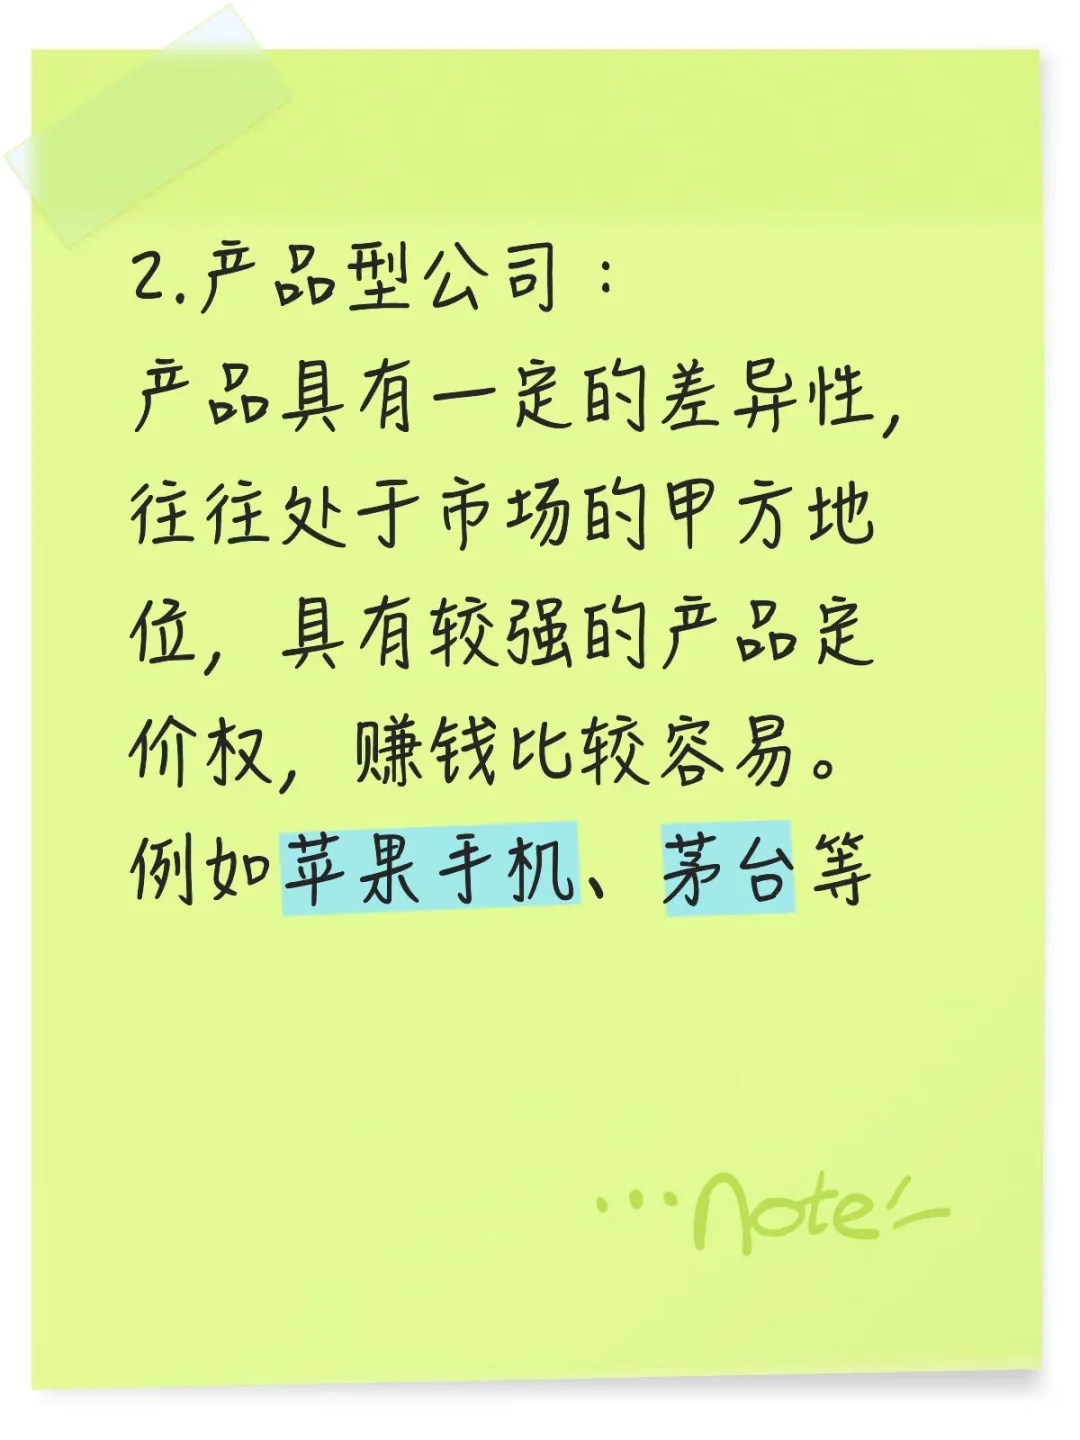 2.产品型公司：
产品具有一定的差异性，
往往处于市场的甲方地
位，具有较强的产品定
价权，赚钱比较容易。
例如苹果手机、茅台等
...note